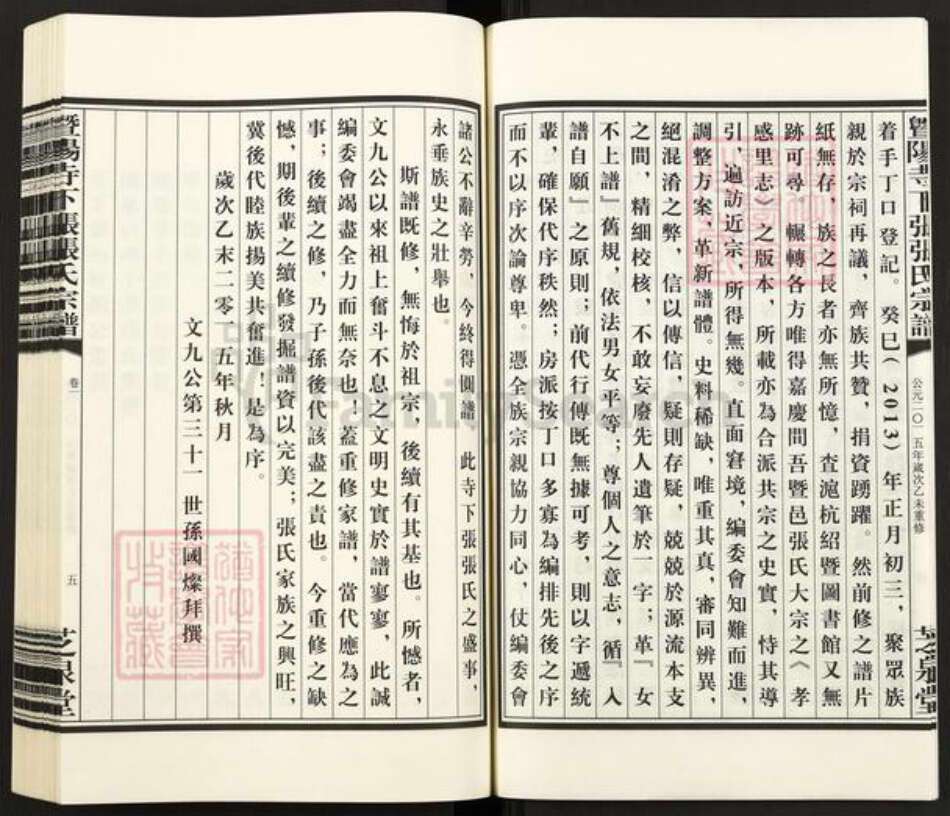 暨陽寺下張張氏宗譜
公元二〇一五年歲次乙未重修
芝泉堂
着手丁口登記。癸巳(2013)年正月初三,聚眾族
親於宗祠再議,齊族共贊,捐資踴躍。然前修之譜片
紙無存,族之長者亦無所憶,查滬杭紹暨圖書館又無
跡可尋。輾轉各方唯得嘉慶間吾暨邑張氏大宗之《孝
感里志》之版本,所載亦為合派共宗之史實,恃其導
引,遍訪近宗,所得無幾。直面窘境,編委會知難而進,
調整方案,革新譜體。史料稀缺,唯重其真,審同辨異,
絕混淆之弊,信以傳信,疑則存疑,兢兢於源流本支
之間,精細校核,不敢妄廢先人遺筆於一字;革『女
不上譜』舊規,依法男女平等;尊個人之意志,循『入
譜自願』之原則;前代行傳既無據可考,則以字遞統
輩,確保代序秩然;房派按丁口多寡為編排先後之序
而不以序次論尊卑。憑全族宗親協力同心,仗編委會
諸公不辭辛勞,今終得圓譜,此寺下張張氏之盛事,
永垂族史之壯舉也。
斯譜既修,無悔於祖宗,後續有其基也。所憾者,
文九公以來祖上奮斗不息之文明史實於譜寥寥,此誠
編委會竭盡全力而無奈也!蓋重修家譜,當代應為之
事;後續之修,乃子孫後代該盡之責也。今重修之缺
憾,期後輩之續修發掘譜資以完美;張氏家族之興旺,
冀後代睦族揚美共奮進!是為序。
歲次乙未二零一五年秋月
文九公第三十一世孫國燦拜撰
暨陽寺下張張氏宗譜
卷一
五
芝泉堂
FamilySearch